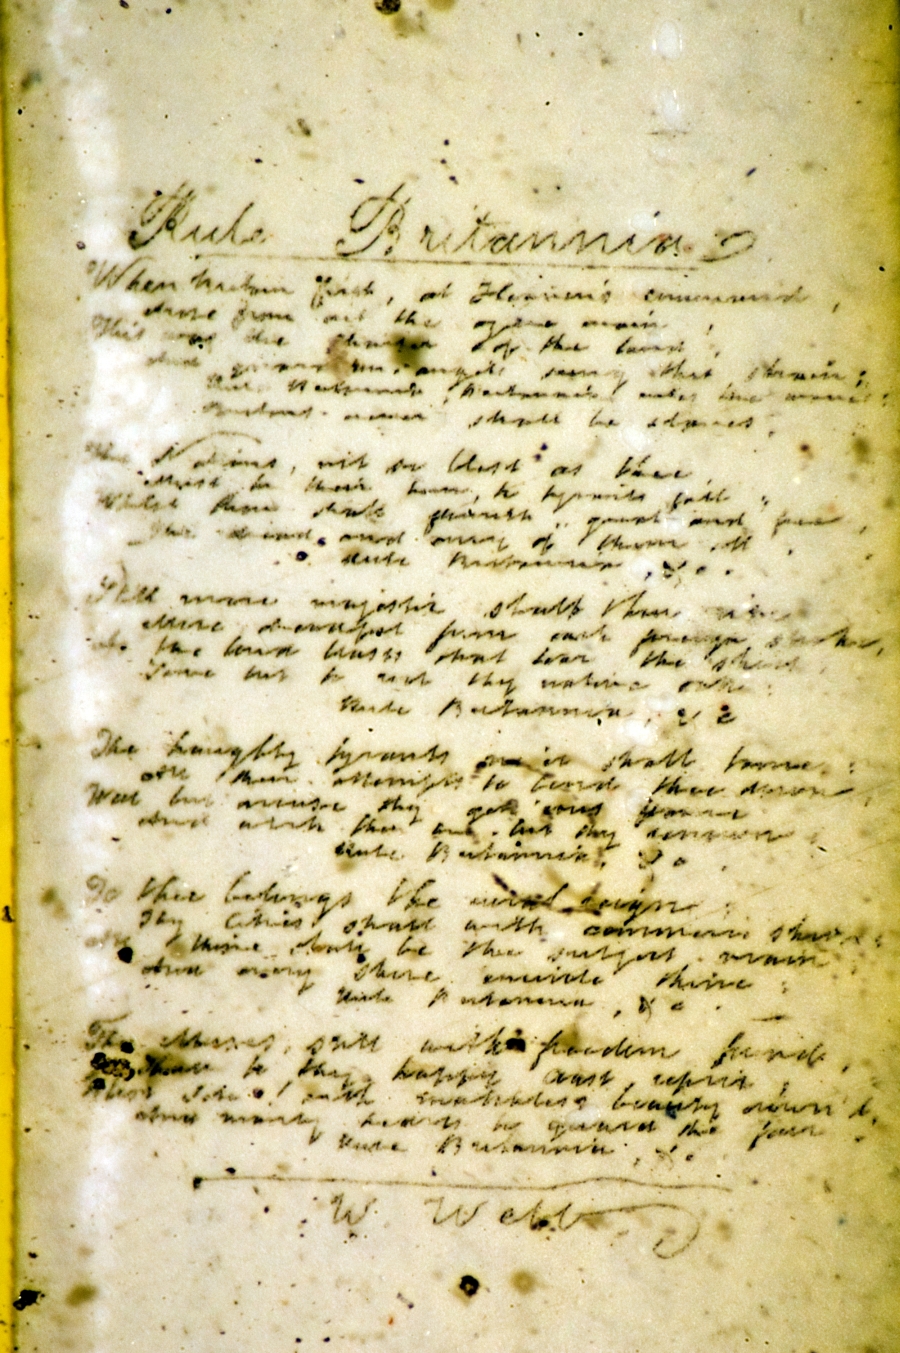 Rule Britannia
When Britain first, at Heaven's command,
Arose from out the azure main,
This was the charter of the land,
And guardian angels sung this strain:
Rule Britannia, Britannia rules the waves
Britons never shall be slaves.
The Nations, not so blest as thee,
Must in their turn, to tyrants fall
Whilst thou shalt flourish great and free,
The dread and envy of them all.
Rule Britannia, &c.
Still more majestic shalt thou rise
More dreadful from each foreign stroke,
As the loud blast that tear the skies
Serve but to root thy native oak.
Rule Britannia, & c
The haughty tyrants ne'er shall tame:
All their attempts to bend thee down,
Will but arouse thy gen'rous flame
And work their woe but thy renown
Rule Britannia, & c.
To thee belongs the rural reign;
Thy Cities shall with commerce shine:
All thine shall be the subject main
And every shore encircle thine:
Rule Britannia, & c.
The Muses, still with freedom found,
Shall to thy happy coast repair;
Blest Isle! with matchless beauty crown'd,
And manly hearts to guard the fair.
Rule Britannia, &c.
W Webb